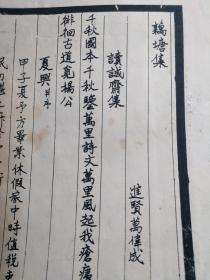 藕塘集
進賢萬偉成
讀誠齋集
千秋國本千秋鑒萬里詩文萬里風起我瘡痍
徘徊古道覓楊公
夏興并序
甲子夏予方畢業休假家中時值税吏